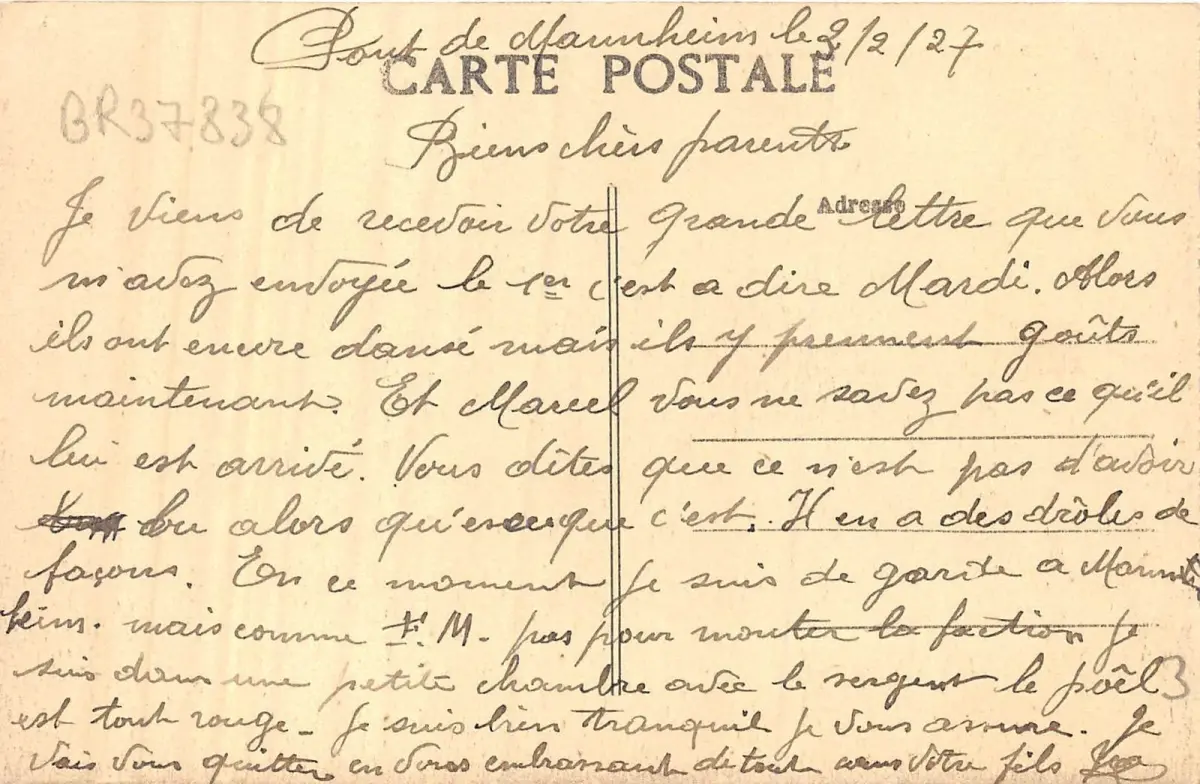 Pont de Mannheim le 2/2/27
CARTE POSTALE
BR37.838
Biens chèrs parents
Adresse
Je viens de recevoir votre grande lettre que vous
m'avez envoyée le 1er c'est a dire Mardi. Alors
ils ont encore dansé mais ils y prennent goûts
maintenant. Et Marcel vous ne savez pas ce qu'il
lui est arrivé. Vous dîtes que ce n'est pas d'avoir
bu alors qu'esceque c'est. Il en a des drôles de
façons. En ce moment je suis de garde a Mann
heim. mais comme F. M. pas pour monter la faction je
suis dans une petite chambre avec le sergent le pôêl
3
est tout rouge_ je suis bien tranquil je vous assure. Je
vais vous quitter en vous embrassant de tout cœur votre fils